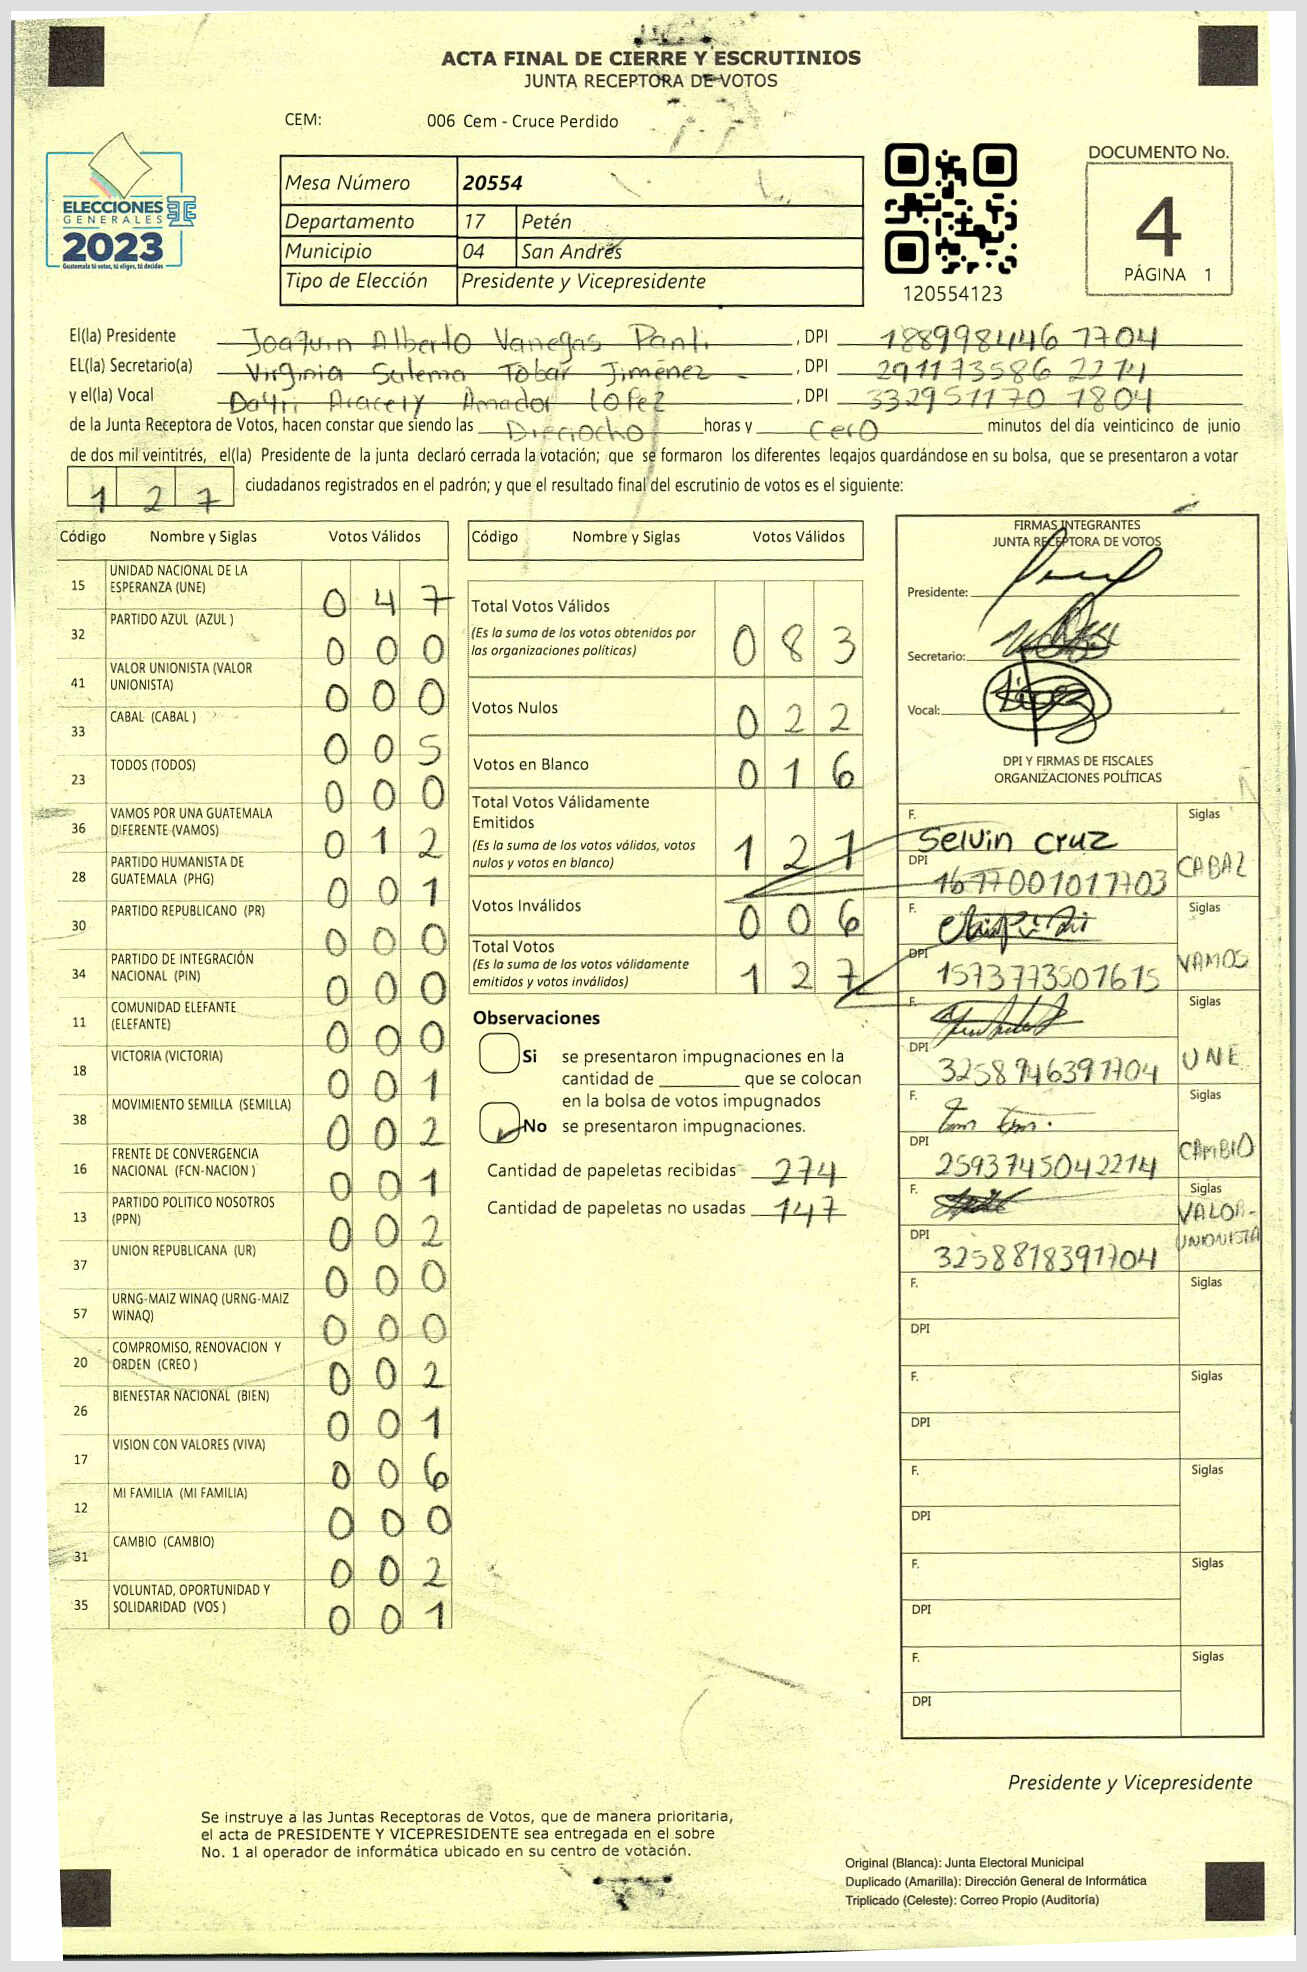 ACTA FINAL DE CIERRE Y ESCRUTINIOS
JUNTA RECEPTORA DE VOTOS
CEM: 006 Cem - Cruce Perdido
ELECCIONES
GENERALES
2023
Guatemala tú votas, tú eliges, tú decides
Mesa Número 20554
Departamento 17 Petén
Municipio 04 San Andrés
Tipo de Elección Presidente y Vicepresidente
120554123
DOCUMENTO No.
4
PÁGINA 1
El(la) Presidente Joaquin Alberto Vanegas Panti, DPI 188998446 1704
EL(la) Secretario(a) Virginia Salema Tobar Jiménez, DPI 291173586 2214
y el(la) Vocal Aracely Amador Lopez, DPI 332951170 1804
de la Junta Receptora de Votos, hacen constar que siendo las Dieciocho horas y cero minutos del día veinticinco de junio
de dos mil veintitrés, el(la) Presidente de la junta declaró cerrada la votación; que se formaron los diferentes legajos quardándose en su bolsa, que se presentaron a votar
127 ciudadanos registrados en el padrón; y que el resultado final del escrutinio de votos es el siguiente:
Código Nombre y Siglas Votos Válidos
15 UNIDAD NACIONAL DE LA ESPERANZA (UNE) 047
32 PARTIDO AZUL (AZUL ) 000
41 VALOR UNIONISTA (VALOR UNIONISTA) 000
33 CABAL (CABAL ) 005
23 TODOS (TODOS) 000
36 VAMOS POR UNA GUATEMALA DIFERENTE (VAMOS) 012
28 PARTIDO HUMANISTA DE GUATEMALA (PHG) 001
30 PARTIDO REPUBLICANO (PR) 000
34 PARTIDO DE INTEGRACIÓN NACIONAL (PIN) 000
11 COMUNIDAD ELEFANTE (ELEFANTE) 000
18 VICTORIA (VICTORIA) 001
38 MOVIMIENTO SEMILLA (SEMILLA) 002
16 FRENTE DE CONVERGENCIA NACIONAL (FCN-NACION ) 001
13 PARTIDO POLITICO NOSOTROS (PPN) 002
37 UNION REPUBLICANA (UR) 000
57 URNG-MAIZ WINAQ (URNG-MAIZ WINAQ) 000
20 COMPROMISO, RENOVACION Y ORDEN (CREO ) 002
26 BIENESTAR NACIONAL (BIEN) 001
17 VISION CON VALORES (VIVA) 006
12 MI FAMILIA (MI FAMILIA) 000
31 CAMBIO (CAMBIO) 002
35 VOLUNTAD, OPORTUNIDAD Y SOLIDARIDAD (VOS ) 001
Código Nombre y Siglas Votos Válidos
Total Votos Válidos 083
(Es la suma de los votos obtenidos por
las organizaciones políticas)
Votos Nulos 022
Votos en Blanco 016
Total Votos Válidamente
Emitidos
(Es la suma de los votos válidos, votos
nulos y votos en blanco) 127
Votos Inválidos 006
Total Votos
(Es la suma de los votos válidamente
emitidos y votos inválidos) 127
Observaciones
Si se presentaron impugnaciones en la
cantidad de ________ que se colocan
en la bolsa de votos impugnados
No se presentaron impugnaciones.
Cantidad de papeletas recibidas 274
Cantidad de papeletas no usadas 147
FIRMAS INTEGRANTES
JUNTA RECEPTORA DE VOTOS
Presidente:
Secretario:
Vocal:
DPI Y FIRMAS DE FISCALES
ORGANIZACIONES POLÍTICAS
F. Selvin Cruz Siglas
DPI 1677001011703 CABAL
F. Siglas
DPI 1573773501615 VAMOS
F. Siglas
DPI 3258946391704 UNE
F. Siglas
DPI 2593745042214 CAMBIO
F. Siglas
DPI 3258818391704 VALOR-
UNIONISTA
F. Siglas
DPI
F. Siglas
DPI
F. Siglas
DPI
F. Siglas
DPI
F. Siglas
DPI
Presidente y Vicepresidente
Se instruye a las Juntas Receptoras de Votos, que de manera prioritaria,
el acta de PRESIDENTE Y VICEPRESIDENTE sea entregada en el sobre
No. 1 al operador de informática ubicado en su centro de votación.
Original (Blanca): Junta Electoral Municipal
Duplicado (Amarilla): Dirección General de Informática
Triplicado (Celeste): Correo Propio (Auditoría)